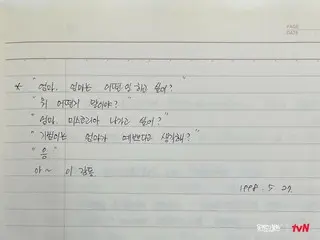 PAGE
DATE
* " 엄마. 엄마는 어떤 일 하고 싶어?"
" 뭐 어떻게 말이야? "
" 엄마. 미스코리아 나가고 싶어? "
" 기범이는 엄마가 예쁘다고 생각해? "
" 응 "
아~ 이 감동
1998. 5. 27.
tvN